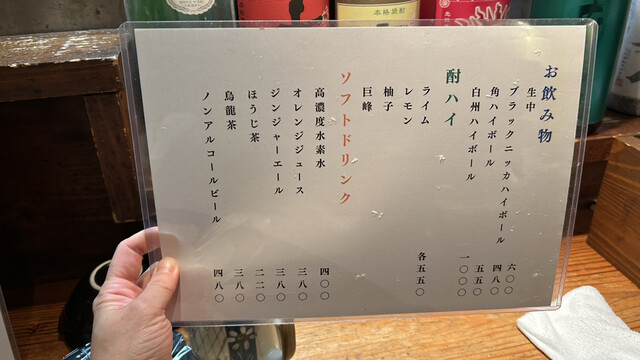 本格焼酎
お飲み物
生中 六〇〇
ブラックニッカハイボール 四八〇
角ハイボール 五五〇
白州ハイボール 一〇〇〇
酎ハイ
ライム 各五五〇
レモン
柚子
巨峰
ソフトドリンク
高濃度水素水 四〇〇
オレンジジュース 三八〇
ジンジャーエール 三八〇
ほうじ茶 二二〇
烏龍茶 三八〇
ノンアルコールビール 四八〇